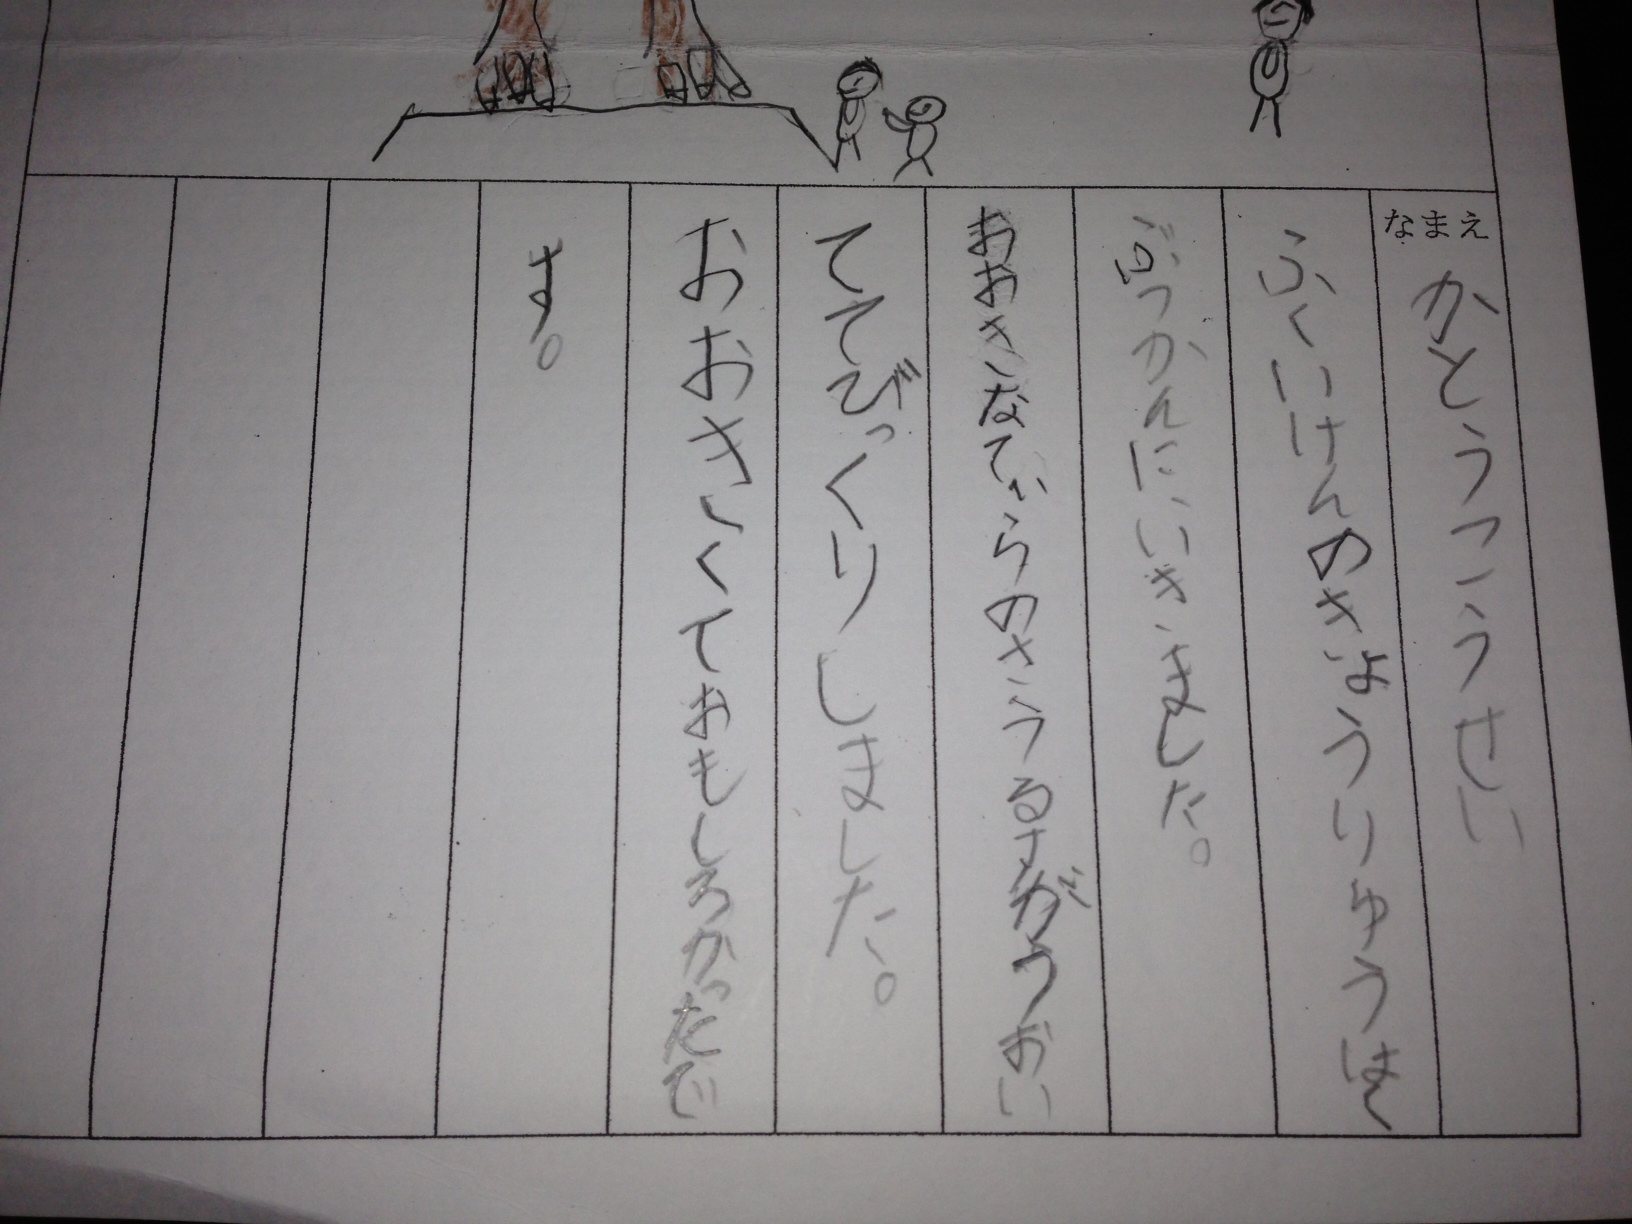 なまえ
かとうこうせい
ふくいけんのきょうりゅうはく
ぶつかんにいきました。
おおきなてぃらのさうるすがうおい
ててびっくりしました。
おおきくておもしろかったで
す。